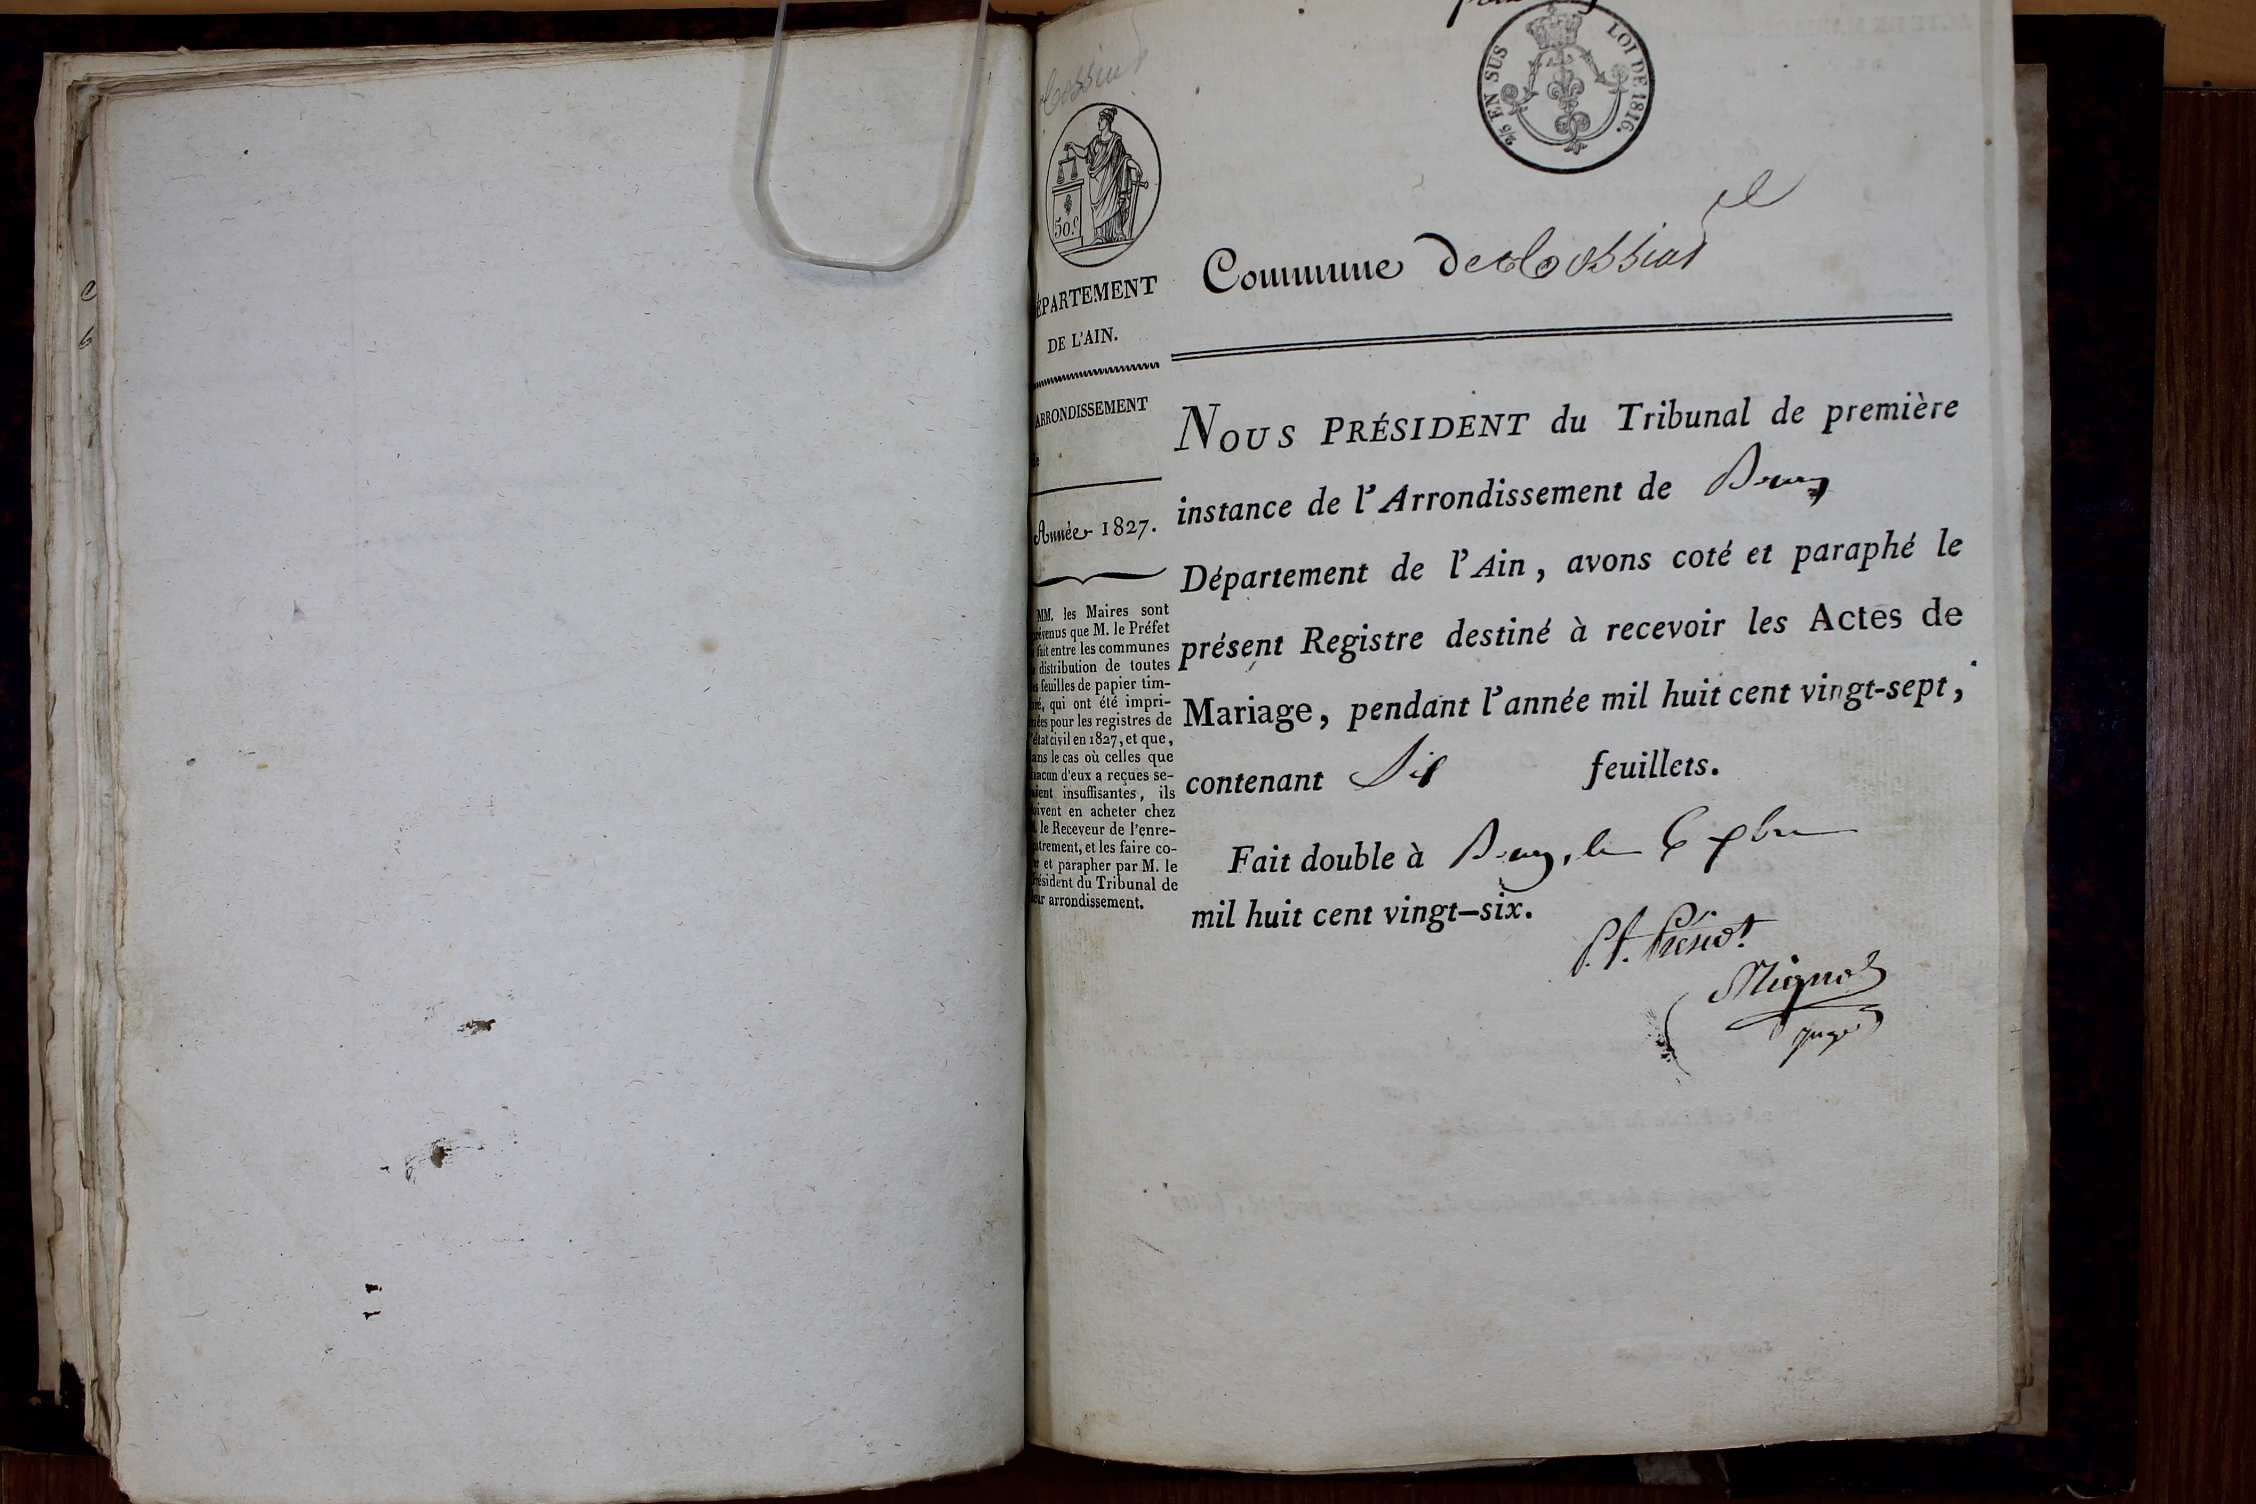 2/5 EN SUS
LOI DE 1816.
50.c
ÉPARTEMENT
DE L'AIN.
ARRONDISSEMENT
Année 1827.
MM. les Maires sont
révenus que M. le Préfet
fait entre les communes
distribution de toutes
feuilles de papier tim-
bré, qui ont été impri-
mées pour les registres de
l'état civil en 1827, et que,
ans le cas où celles que
hacun d'eux a reçues se-
aient insuffisantes, ils
oivent en acheter chez
le Receveur de l'enre-
istrement, et les faire co-
et parapher par M. le
résident du Tribunal de
eur arrondissement.
Commune de Cossiat
NOUS PRÉSIDENT du Tribunal de première
instance de l'Arrondissement de Bourg
Département de l'Ain, avons coté et paraphé le
présent Registre destiné à recevoir les Actes de
Mariage, pendant l'année mil huit cent vingt-sept,
contenant Six feuillets.
Fait double à Bourg, le 6 xbre
mil huit cent vingt-six.
P.r Présid.t
Mignot
juge